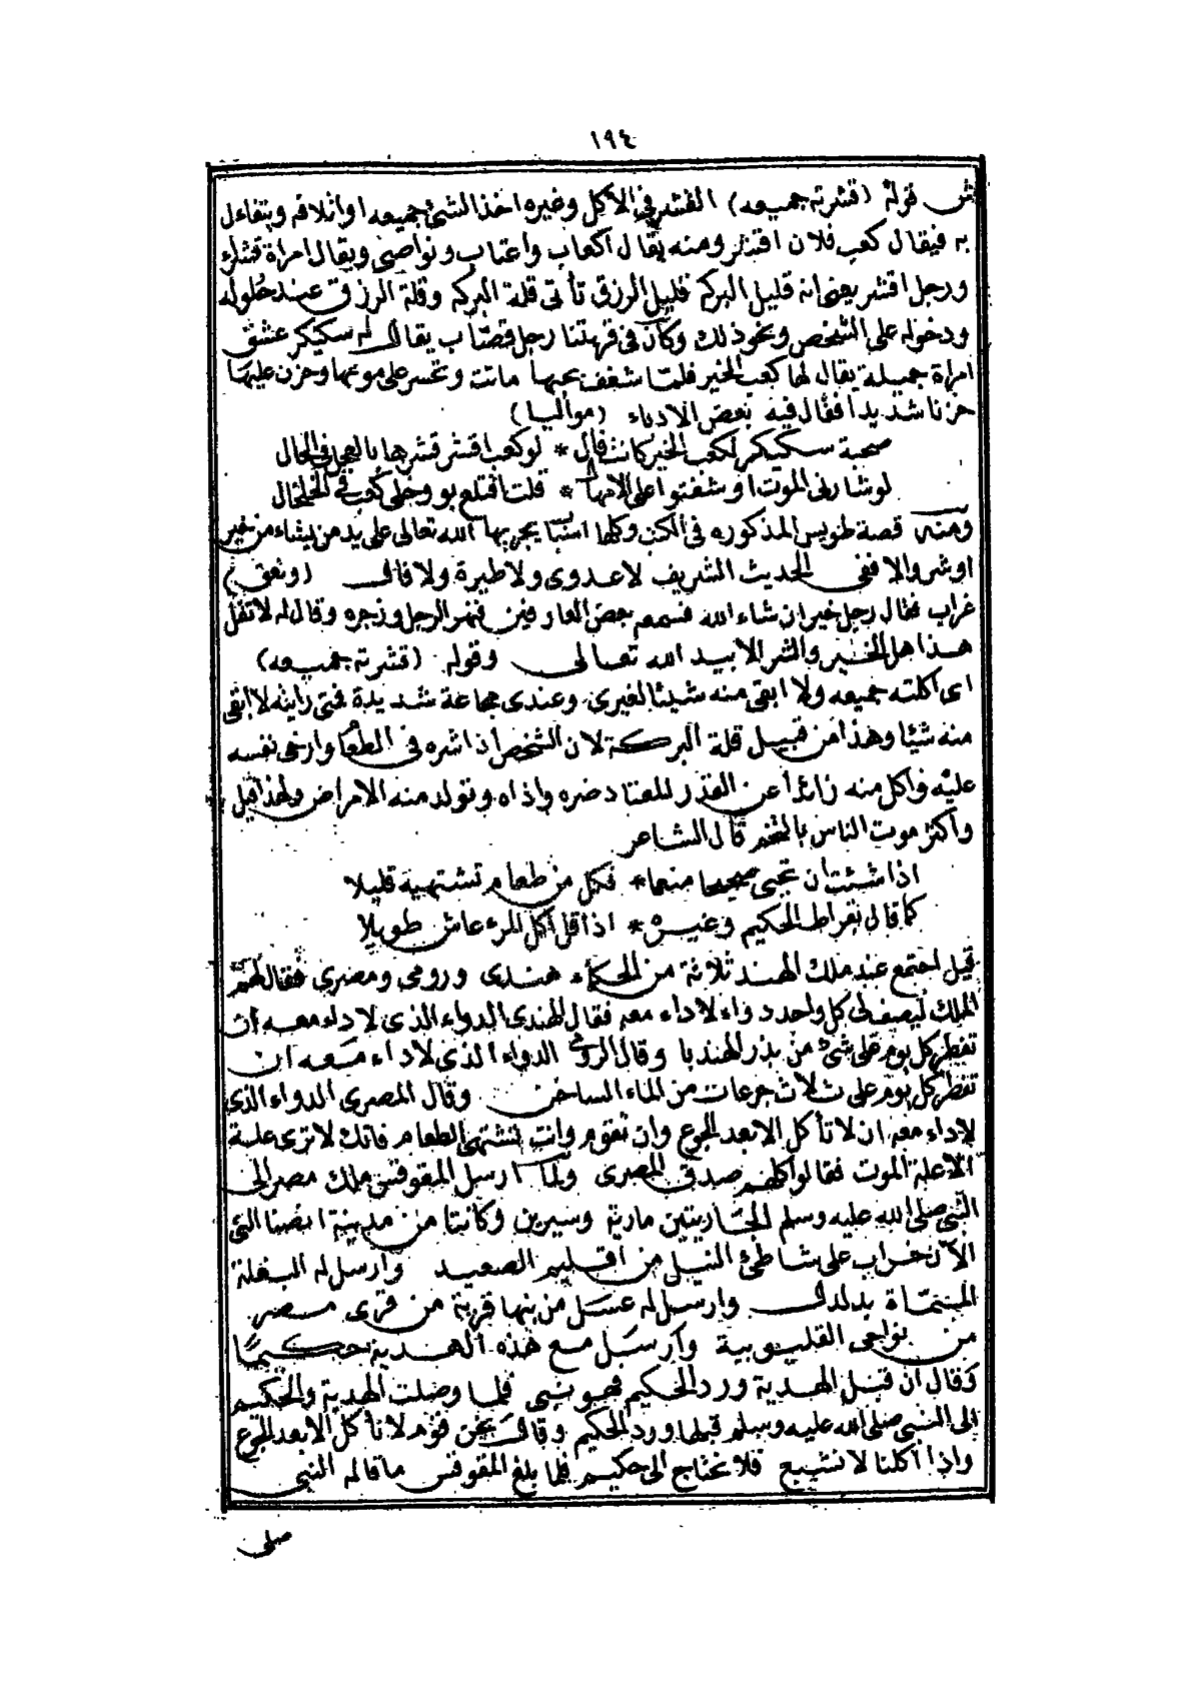 ١٩٤
ش قوله (قشرته جميعه) القشر في الاكل وغيره اخذ الشئ جميعه او اتلافه ويتفاءل
به فيقال كعب فلان اقشر ومنه يقال اكعاب واعتاب ونواصى ويقال امراة قشراء
ورجل اقشر يعنى انه قليل البركه قليل الرزق تأتى قلة البركه وقلة الرزق عند حلوله
ودخوله على الشخص ونحو ذلك وكان فى قريتنا رجل قصّاب يقال له سكيكر عشق
امراة جميلة يقال لها كعب الخير فلمّا شغف بحبها ماتت وتحسر على موتها وحزن عليها
حزنا شديدا فقال فيه بعض الادباء (مواليا)
صحبة سكيكر لكعب الخير كانت فال * لو كعب اقشر قشرها بالعجل فى الحال
لو شارنى الموت او شفتوا على الامها * قلت اقتلع بو وخلى كعب فى الخلخال
ومنه قصة طويس المذكوره فى الكتب وكلها اشيا يجريها الله تعالى على يد من يشاء من خير
او شر والا ففى الحديث الشريف لا عدوى ولا طيرة ولا فال (ونعق)
غراب فقال رجل خير ان شاء الله فسمعه بعض العارفين فنهر الرجل وزجره وقال له لا تقل
هذا هل الخير والشر الا بيد الله تعالى وقوله (قشرته جميعه)
اى اكلته جميعه ولا ابقى منه شيئا لغيرى وعندى مجاعة شديدة فمتى رايته لا ابقى
منه شيئا وهذا من قبيل قلة البركة لان الشخص اذا شره فى الطعام وارخى نفسه
عليه واكل منه زائدا عن القدر المعتاد ضره واذاه وتولد منه الامراض ولهذا قيل
واكثر موت الناس بالتخم قال الشاعر
اذا شئت ان تحيى صحيحا منعما * فكل من طعام تشتهيه قليلا
كما قال بقراط الحكيم وغيره * اذا قل اكل المرء عاش طويلا
قيل اجتمع عند ملك الهند ثلاثة من الحكماء هندى ورومى ومصرى فقال لهم
الملك ليصف لى كل واحد دواء لا داء معه فقال الهندى الدواء الذى لا داء معه ان
تفطر كل يوم على شئ من بذر الهندبا وقال الرومى الدواء الذى لا داء معه ان
تفطر كل يوم على ثلاث جرعات من الماء الساخن وقال المصرى الدواء الذى
لا داء معه ان لا تأكل الا بعد الجوع وان تقوم وانت تشتهى الطعام فانك لا ترى علة
الا علة الموت فقالوا كلهم صدق المصرى ولما ارسل المقوقس ملك مصر الى
النبى صلى الله عليه وسلم الجاريتين مارية وسيرين وكانتا من مدينة انصنا التى
الآن خراب على شاطئ النيل من اقليم الصعيد وارسل له البغلة
المسمّاة بدلدل وارسل له عسل من بنها قرية من قرى مصر
من نواحى القليوبية وارسل مع هذه الهدية حكيمًا
وقال ان قبل الهدية ورد الحكيم فهو نبى فلما وصلت الهدية والحكيم
الى النبى صلى الله عليه وسلم قبلها ورد الحكيم وقال نحن قوم لا نأكل الا بعد الجوع
واذا اكلنا لا نشبع فلا نحتاج الى حكيم فلما بلغ المقوقس ما قاله النبى
صلى